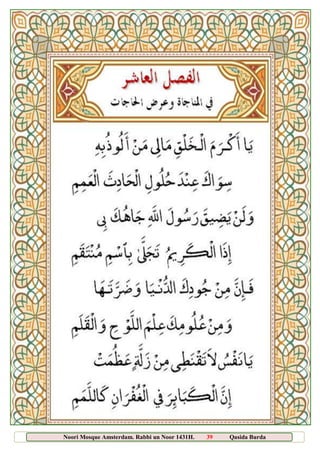 الفصل العاشر
في المناجاة وعرض الحاجات
يَا أَكْرَمَ الْخَلْقِ مَالِي مَنْ أَلُوذُ بِهِ
سِوَاكَ عِنْدَ حُلُولِ الْحَادِثِ الْعَمِمِ
وَلَنْ يَضِيقَ رَسُولَ اللهِ جَاهُكَ بِي
إِذَا الْكَرِيمُ تَجَلَّى بِاسْمِ مُنْتَقِمِ
فَإِنَّ مِنْ جُودِكَ الدُّنْيَا وَضَرَّتَهَا
وَمِنْ عُلُومِكَ عِلْمَ اللَّوْحِ وَالْقَلَمِ
يَا نَفْسُ لَا تَقْنَطِي مِنْ زَلَّةٍ عَظُمَتْ
إِنَّ الْكَبَائِرَ فِي الْغُفْرَانِ كَاللَّمَمِ
Noori Mosque Amsterdam. Rabbi un Noor 1431H. 39 Qasida Burda